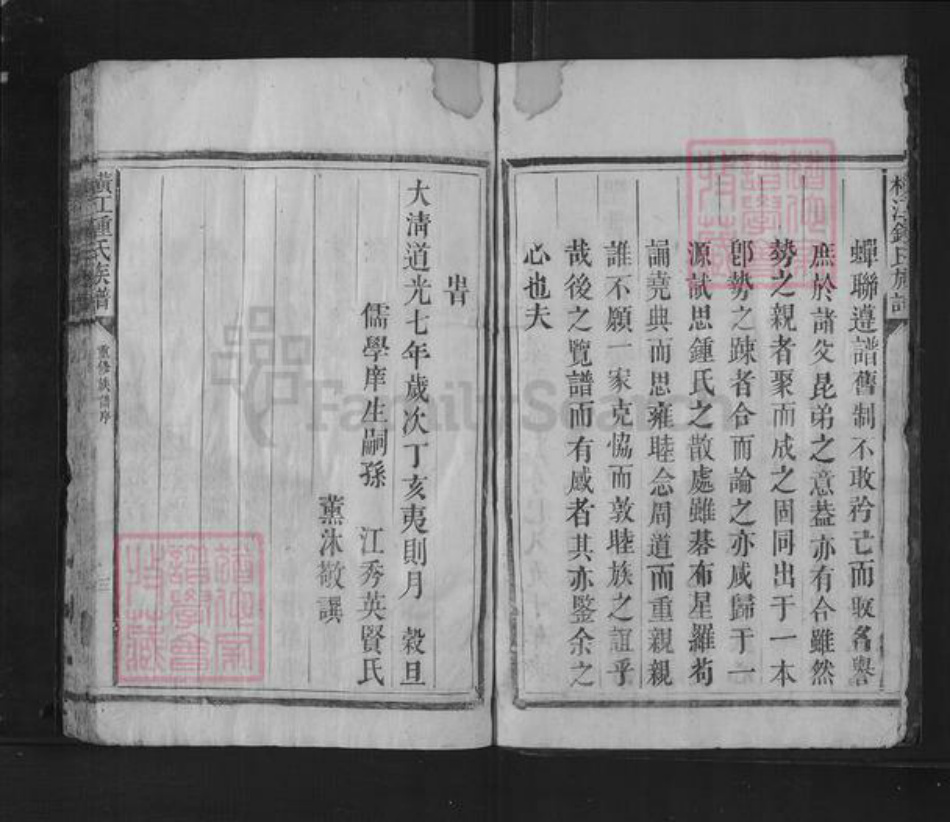 橫江鍾氏族譜
蟬聯遵譜舊制不敢矜亡而取名譽
庶於諸父昆弟之意葢亦有合雖然
勢之親者聚而成之固同出于一本
卽勢之踈者合而論之亦咸歸于一
源試思鍾氏之散處雖碁布星羅苟
誦堯典而思雍睦念周道而重親親
誰不願一家克恊而敦睦族之誼乎
哉後之覽譜而有感者其亦鑒余之
心也夫
旹
大清道光七年歲次丁亥夷則月 穀旦
儒學庠生嗣孫 江秀英賢氏
薰沐敬譔
橫江鍾氏族譜
重修族譜序
三
FamilySearch